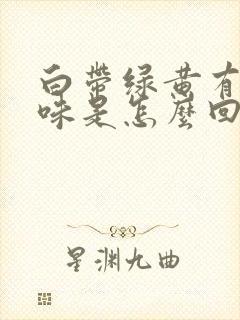 白带绿黄有
味是怎麼回
星渊九曲